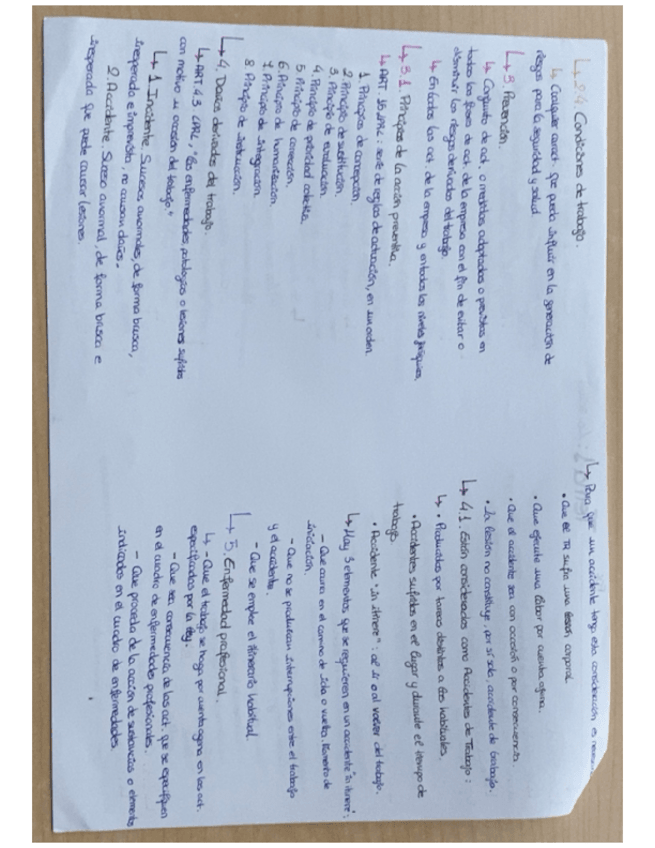 ↳ 2.4. Condiciones de trabajo.
↳ Cualquier caract. que pueda influir en la generación de
riesgos para la seguridad y salud
↳ 3 Prevención.
↳ Conjunto de act. o medidas adaptadas o previstas en
todas las fases de act. de la empresa con el fin de evitar o
disminuir los riesgos derivados del trabajo.
↳ En todas las act. de la empresa y en todos los niveles jerárquicos.
↳ 3.1. Principios de la acción preventiva.
↳ ART 15 LPRL: serie de reglas de actuación, en su orden.
1. Principios de concepción.
2. Principio de sustitución.
3. Principio de evaluación.
4. Principio de prioridad colectiva.
5. Principio de corrección.
6. Principio de humanización.
7. Principio de integración.
8. Principio de instrucción.
↳ 4. Daños derivados del trabajo.
↳ ART 4.3 LPRL, "las enfermedades, patologías o lesiones sufridas
con motivo u ocasión del trabajo."
↳ 1. Incidente. Sucesos anormales, de forma brusca,
inesperada e imprevista, no causan daños.
2. Accidente: Suceso anormal, de forma brusca e
inesperada que puede causar lesiones.
↳ Para que un accidente tenga esta consideración es
• Que el TR sufra una lesión corporal.
• Que ejecute una labor por cuenta ajena.
• Que el accidente sea con ocasión o por consecuencia.
• La lesión no constituye, por si sola, accidente de trabajo.
↳ 4.1. Están considerados como Accidentes de Trabajo:
↳ • Producidos por tareas distintas a las habituales.
• Accidentes sufridos en el lugar y durante el tiempo de
trabajo
• Accidente "in itinere": al ir o al volver del trabajo.
↳ Hay 3 elementos que se requieren en un accidente "in itinere":
- Que ocurra en el camino de ida o vuelta. Momento de
iniciación.
- Que no se produzcan interrupciones entre el trabajo
y el accidente.
- Que se emplee el itinerario habitual.
↳ 5. Enfermedad profesional.
↳ - Que el trabajo se haga por cuenta ajena en las act.
especificadas por la ley.
- Que sea consecuencia de las act. que se especifiquen
en el cuadro de enfermedades profesionales.
- Que proceda de la acción de sustancias o elementos
indicados en el cuadro de enfermedades.